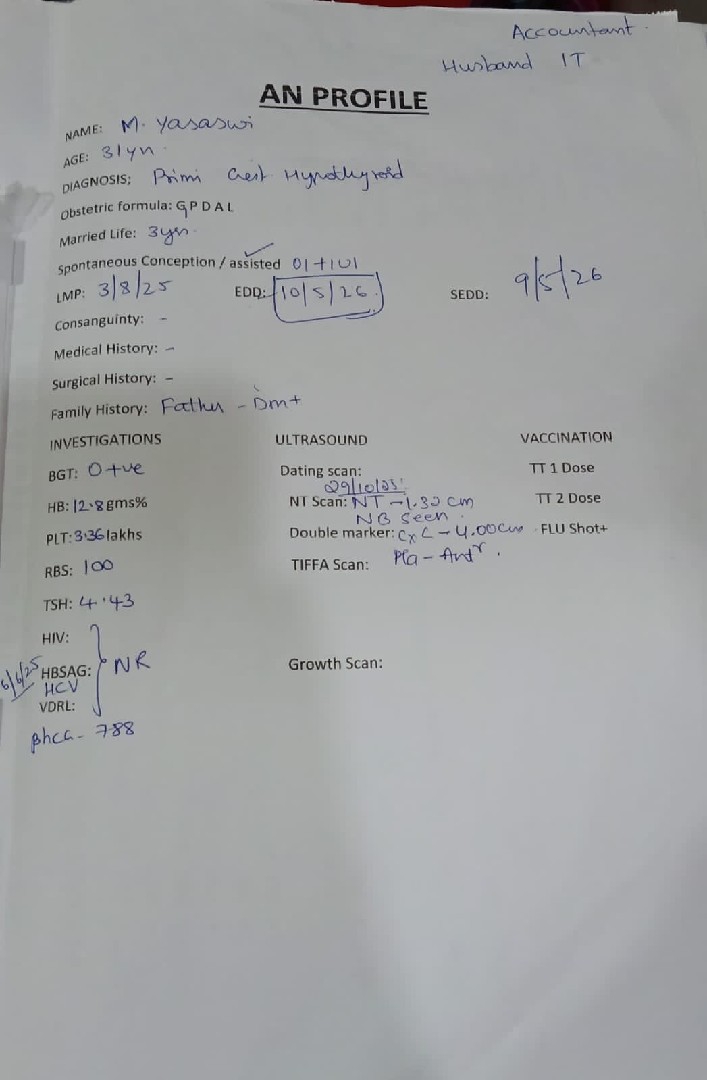 Accountant
Husband IT
AN PROFILE
NAME: M. Yasaswi
AGE: 31yn.
DIAGNOSIS: Primi Gest Hypothyroid
Obstetric formula: G P D A L
Married Life: 3yn.
Spontaneous Conception / assisted OI+IUI
LMP: 3/8/25 EDD: 10/5/26 SEDD: 9/5/26
Consanguinty: -
Medical History: -
Surgical History: -
Family History: Father - Dm+
INVESTIGATIONS ULTRASOUND VACCINATION
BGT: O+ve Dating scan: TT 1 Dose
29/10/25
HB: 12.8 gms% NT Scan: NT - 1.32 cm TT 2 Dose
NB Seen.
PLT: 3.36 lakhs Double marker: CxL - 4.00cm FLU Shot+
RBS: 100 TIFFA Scan: Pla - Antr.
TSH: 4.43
HIV:
6/6/25 HBSAG: NR Growth Scan:
HCV
VDRL:
βhcG - 788